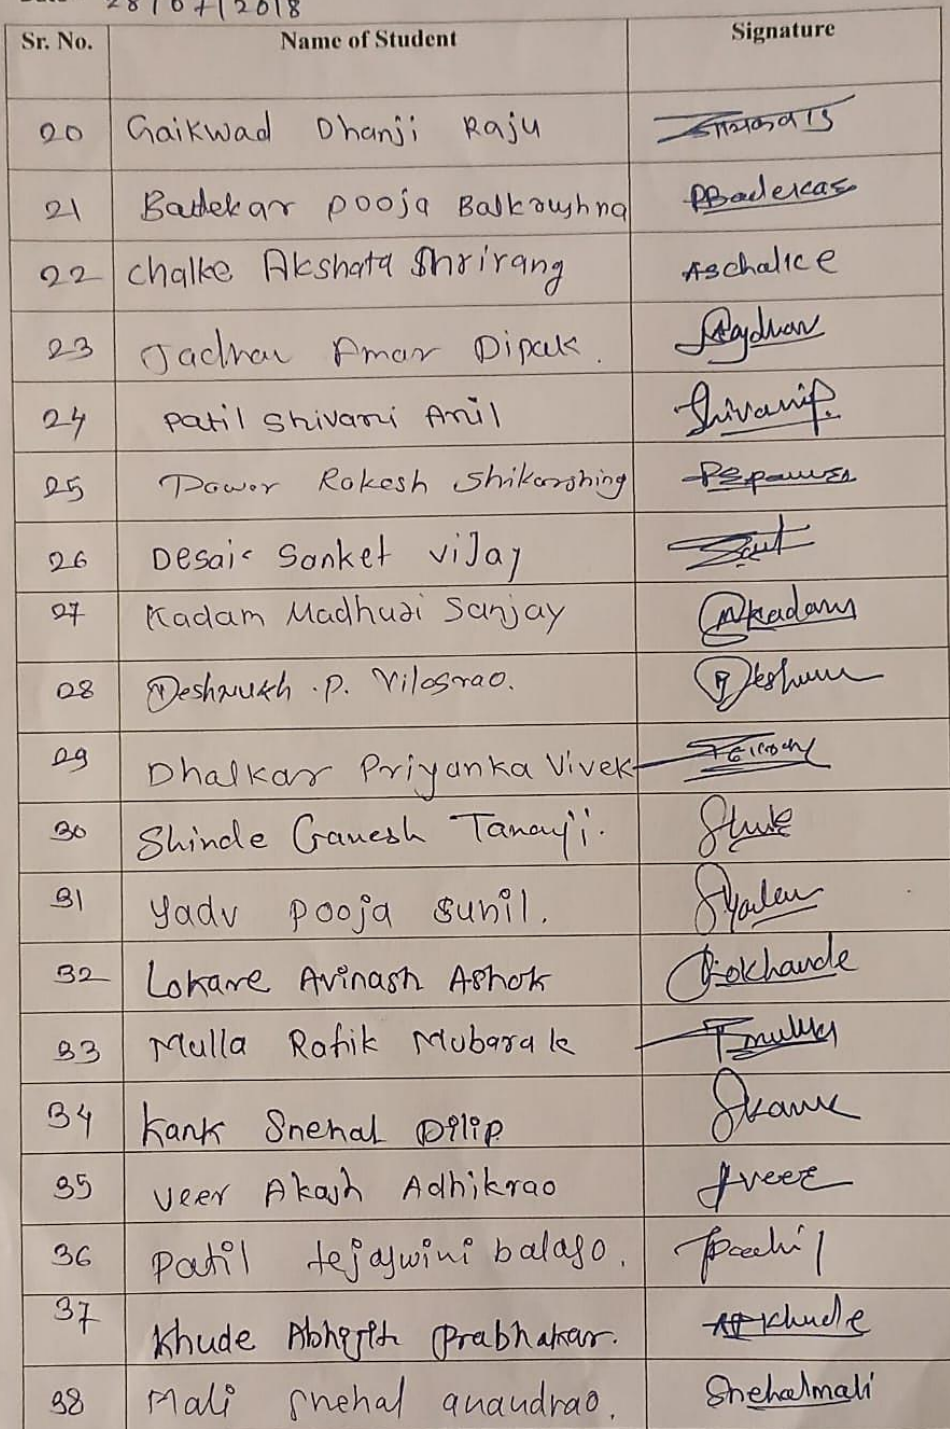 28/07/2018
Sr. No. Name of Student Signature
20 Gaikwad Dhanji Raju गायकवाड
21 Badekar Pooja Balkrushna PBadekar
22 Chalke Akshata Shrirang Aschalke
23 Jadhav Amar Dipak.
24 Patil Shivani Anil Shivanip.
25 Pawar Rakesh Shikarshing RSpawar
26 Desai Sanket Vijay
27 Kadam Madhuri Sanjay Mkadam
28 Deshmukh .P. Vilasrao.
29 Dhalkar Priyanka Vivek
30 Shinde Ganesh Tanaji.
31 Yadv Pooja Sunil.
32 Lokare Avinash Ashok Lokhande
33 Mulla Rafik Mubarak
34 Kank Snehal Dilip
35 Veer Akash Adhikrao Aveer
36 Patil tejaswini balaso.
37 Khude Abhijith Prabhakar. APKhude
38 Mali Snehal anandrao. Snehalmali